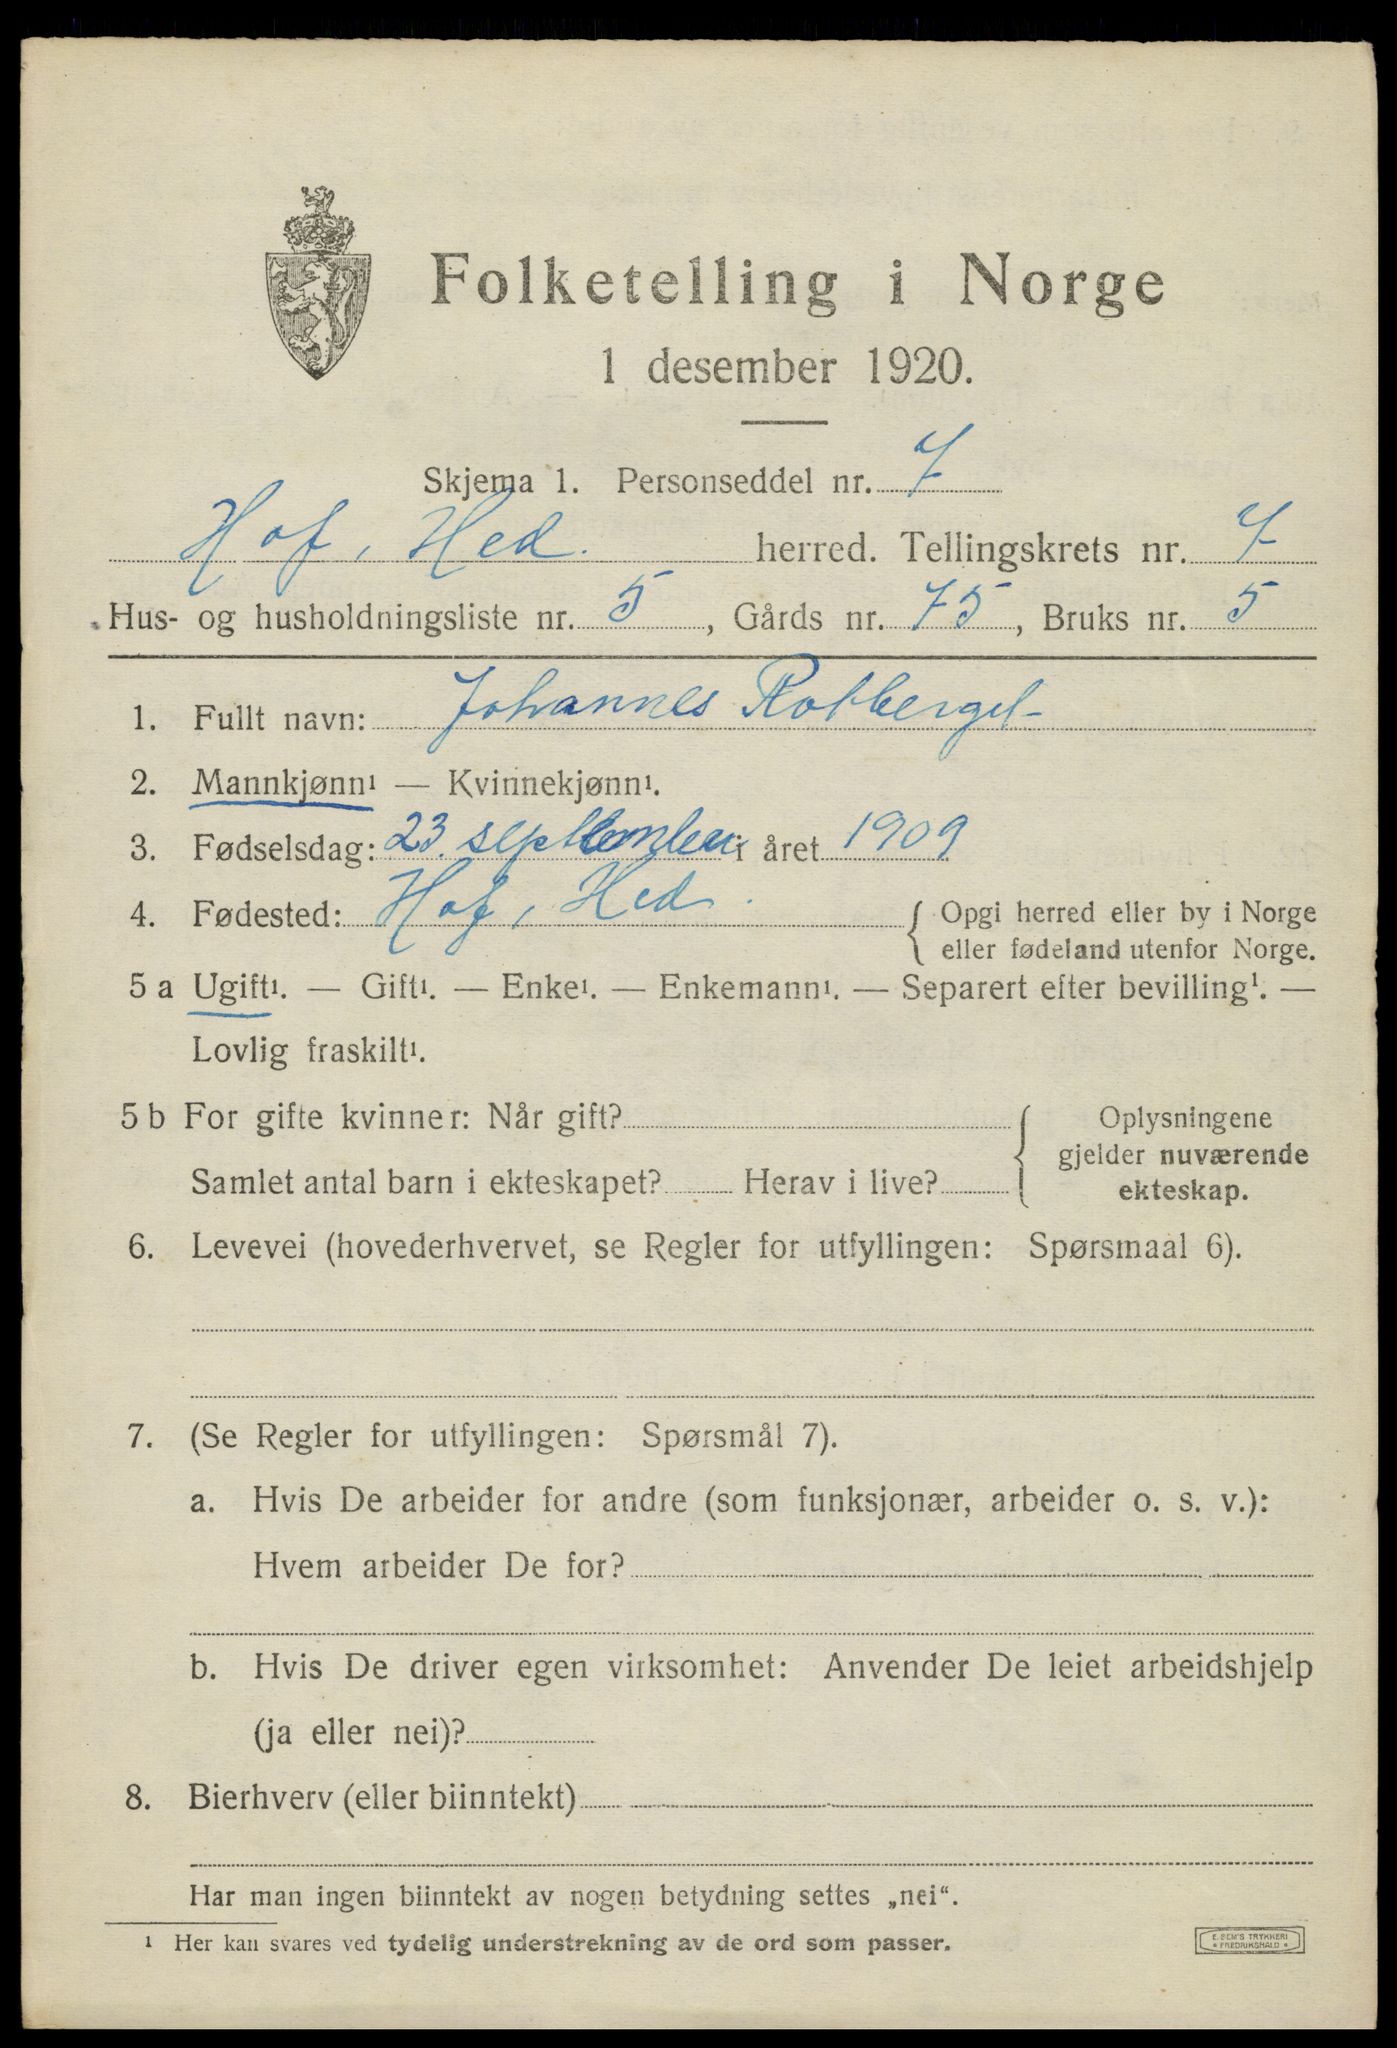 Folketelling i Norge
1 desember 1920.
Skjema 1. Personseddel nr. 7
Hof, Hed. herred. Tellingskrets nr. 7
Hus- og husholdningsliste nr. 5, Gårds nr. 75, Bruks nr. 5
1. Fullt navn: Johannes
2. Mannkjønn¹ — Kvinnekjønn¹.
3. Fødselsdag: 23. september i året 1909
4. Fødested: Hof, Hed. { Opgi herred eller by i Norge
eller fødeland utenfor Norge.
5 a Ugift¹. — Gift¹. — Enke¹. — Enkemann¹. — Separert efter bevilling¹. —
Lovlig fraskilt¹.
5 b For gifte kvinner: Når gift?
Samlet antal barn i ekteskapet? Herav i live?
{ Oplysningene
gjelder nuværende
ekteskap.
6. Levevei (hovederhvervet, se Regler for utfyllingen: Spørsmaal 6).
7. (Se Regler for utfyllingen: Spørsmål 7).
a. Hvis De arbeider for andre (som funksjonær, arbeider o. s. v.):
Hvem arbeider De for?
b. Hvis De driver egen virksomhet: Anvender De leiet arbeidshjelp
(ja eller nei)?
8. Bierhverv (eller biinntekt)
Har man ingen biinntekt av nogen betydning settes „nei“.
¹ Her kan svares ved tydelig understrekning av de ord som passer.
E. SEM'S TRYKKERI
• FREDRIKSHALD •